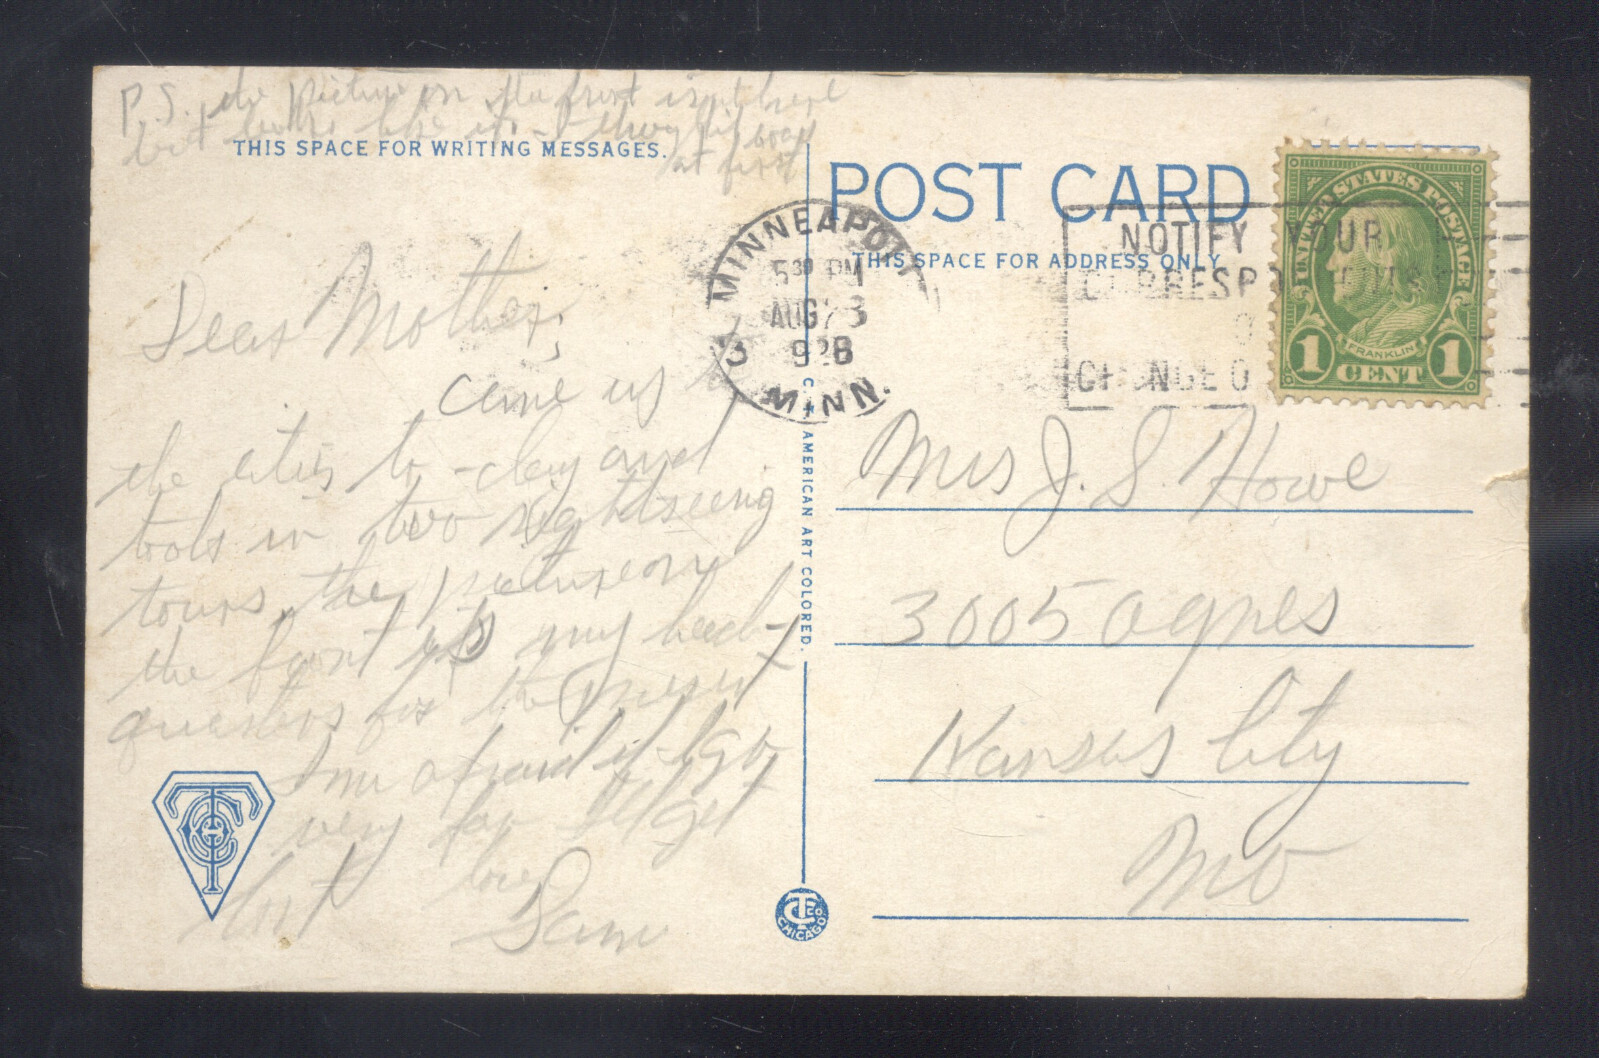 P.S. the picture on the front isn't here
but looks like it - I thought it was
at first
THIS SPACE FOR WRITING MESSAGES.
Dear Mother,
came up
the cities to-day and
took in two sightseeing
tours, the picture on
the front is my head-
quarters for the present
I'm afraid if I go
very far I'll get
lost
love
Sam
POST CARD
THIS SPACE FOR ADDRESS ONLY
MINNEAPOLI
3
MINN.
5 30 PM
AUG 23
1928
NOTIFY YOUR
CORRESPONDENTS
O
CHANGE O
UNITED STATES POSTAGE
FRANKLIN
1 CENT 1
Mrs J. S. Howe
3005 Agnes
Kansas City
Mo
AMERICAN ART COLORED.
CTCO
CHICAGO